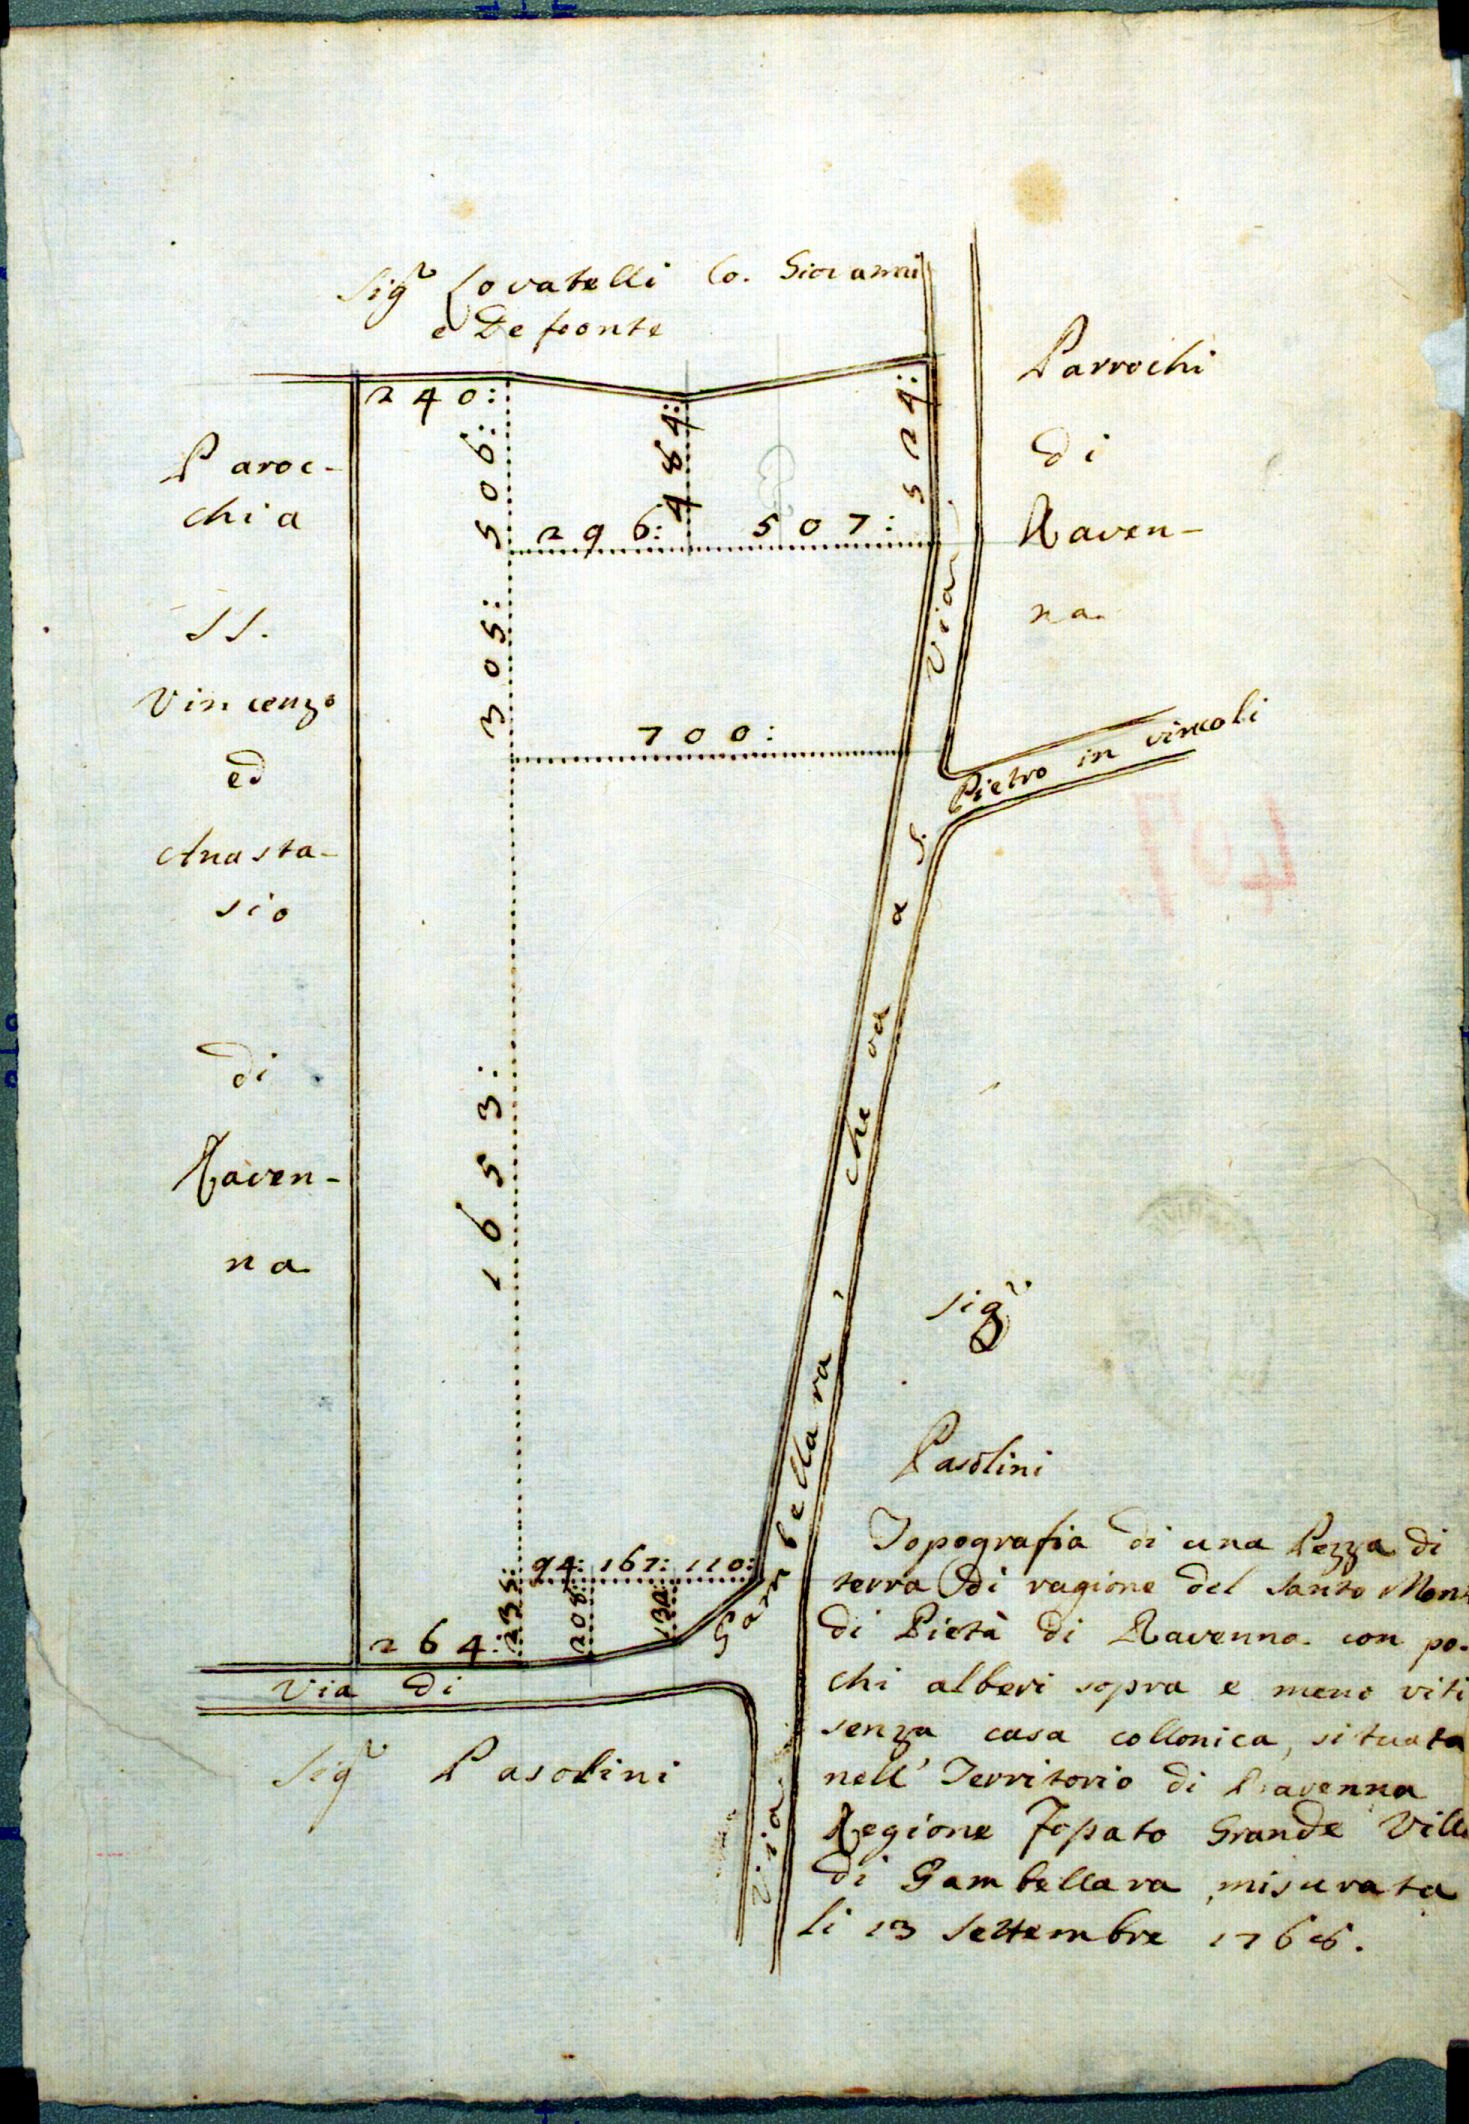 Sig.r Lovatelli Co. Giovanni
e Defronte
Paroc-
chia
SS.
Vincenzo
ed
Anasta-
sio
di
Raven-
na
Parrochi
di
Raven-
na
240:
506:
484:
524:
296:
507:
305:
700:
1653:
94: 167: 110:
235:
208:
134:
264:
Via che va a S. Pietro in vincoli
Via di Gambellara
Via
Sig.r
Pasolini
Sig.r Pasolini
Topografia di una Pezza di
terra di ragione del Santo Mont
di Pietà di Ravenna con po-
chi alberi sopra e meno viti
senza casa collonica, situata
nell' Territorio di Ravenna
Regione Fopato Grande Villa
di Gambellara misurata
li 13 Settembre 1766.